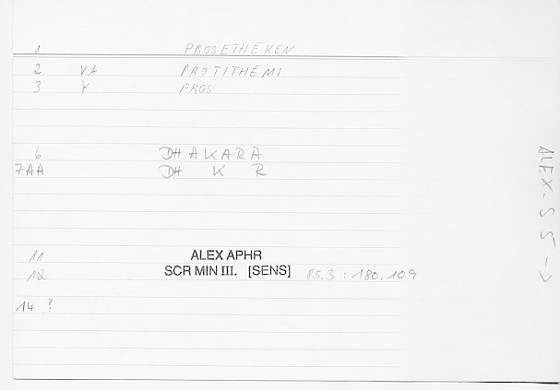 1 PROSETHĒKEN
2 VA PROTITHĒMI
3 Y PROS
6 DHAKARA
7AA DH K R
11 ALEX APHR
12 SCR MIN III. [SENS] 85.3 : 180.109
14 ?
ALEX-S 5 ->